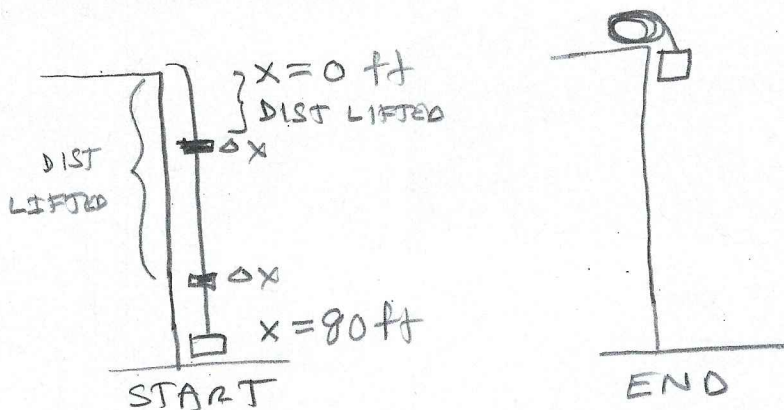 x = 0 ft
DIST LIFTED
Δx
DIST
LIFTED
Δx
x = 80 ft
START
END